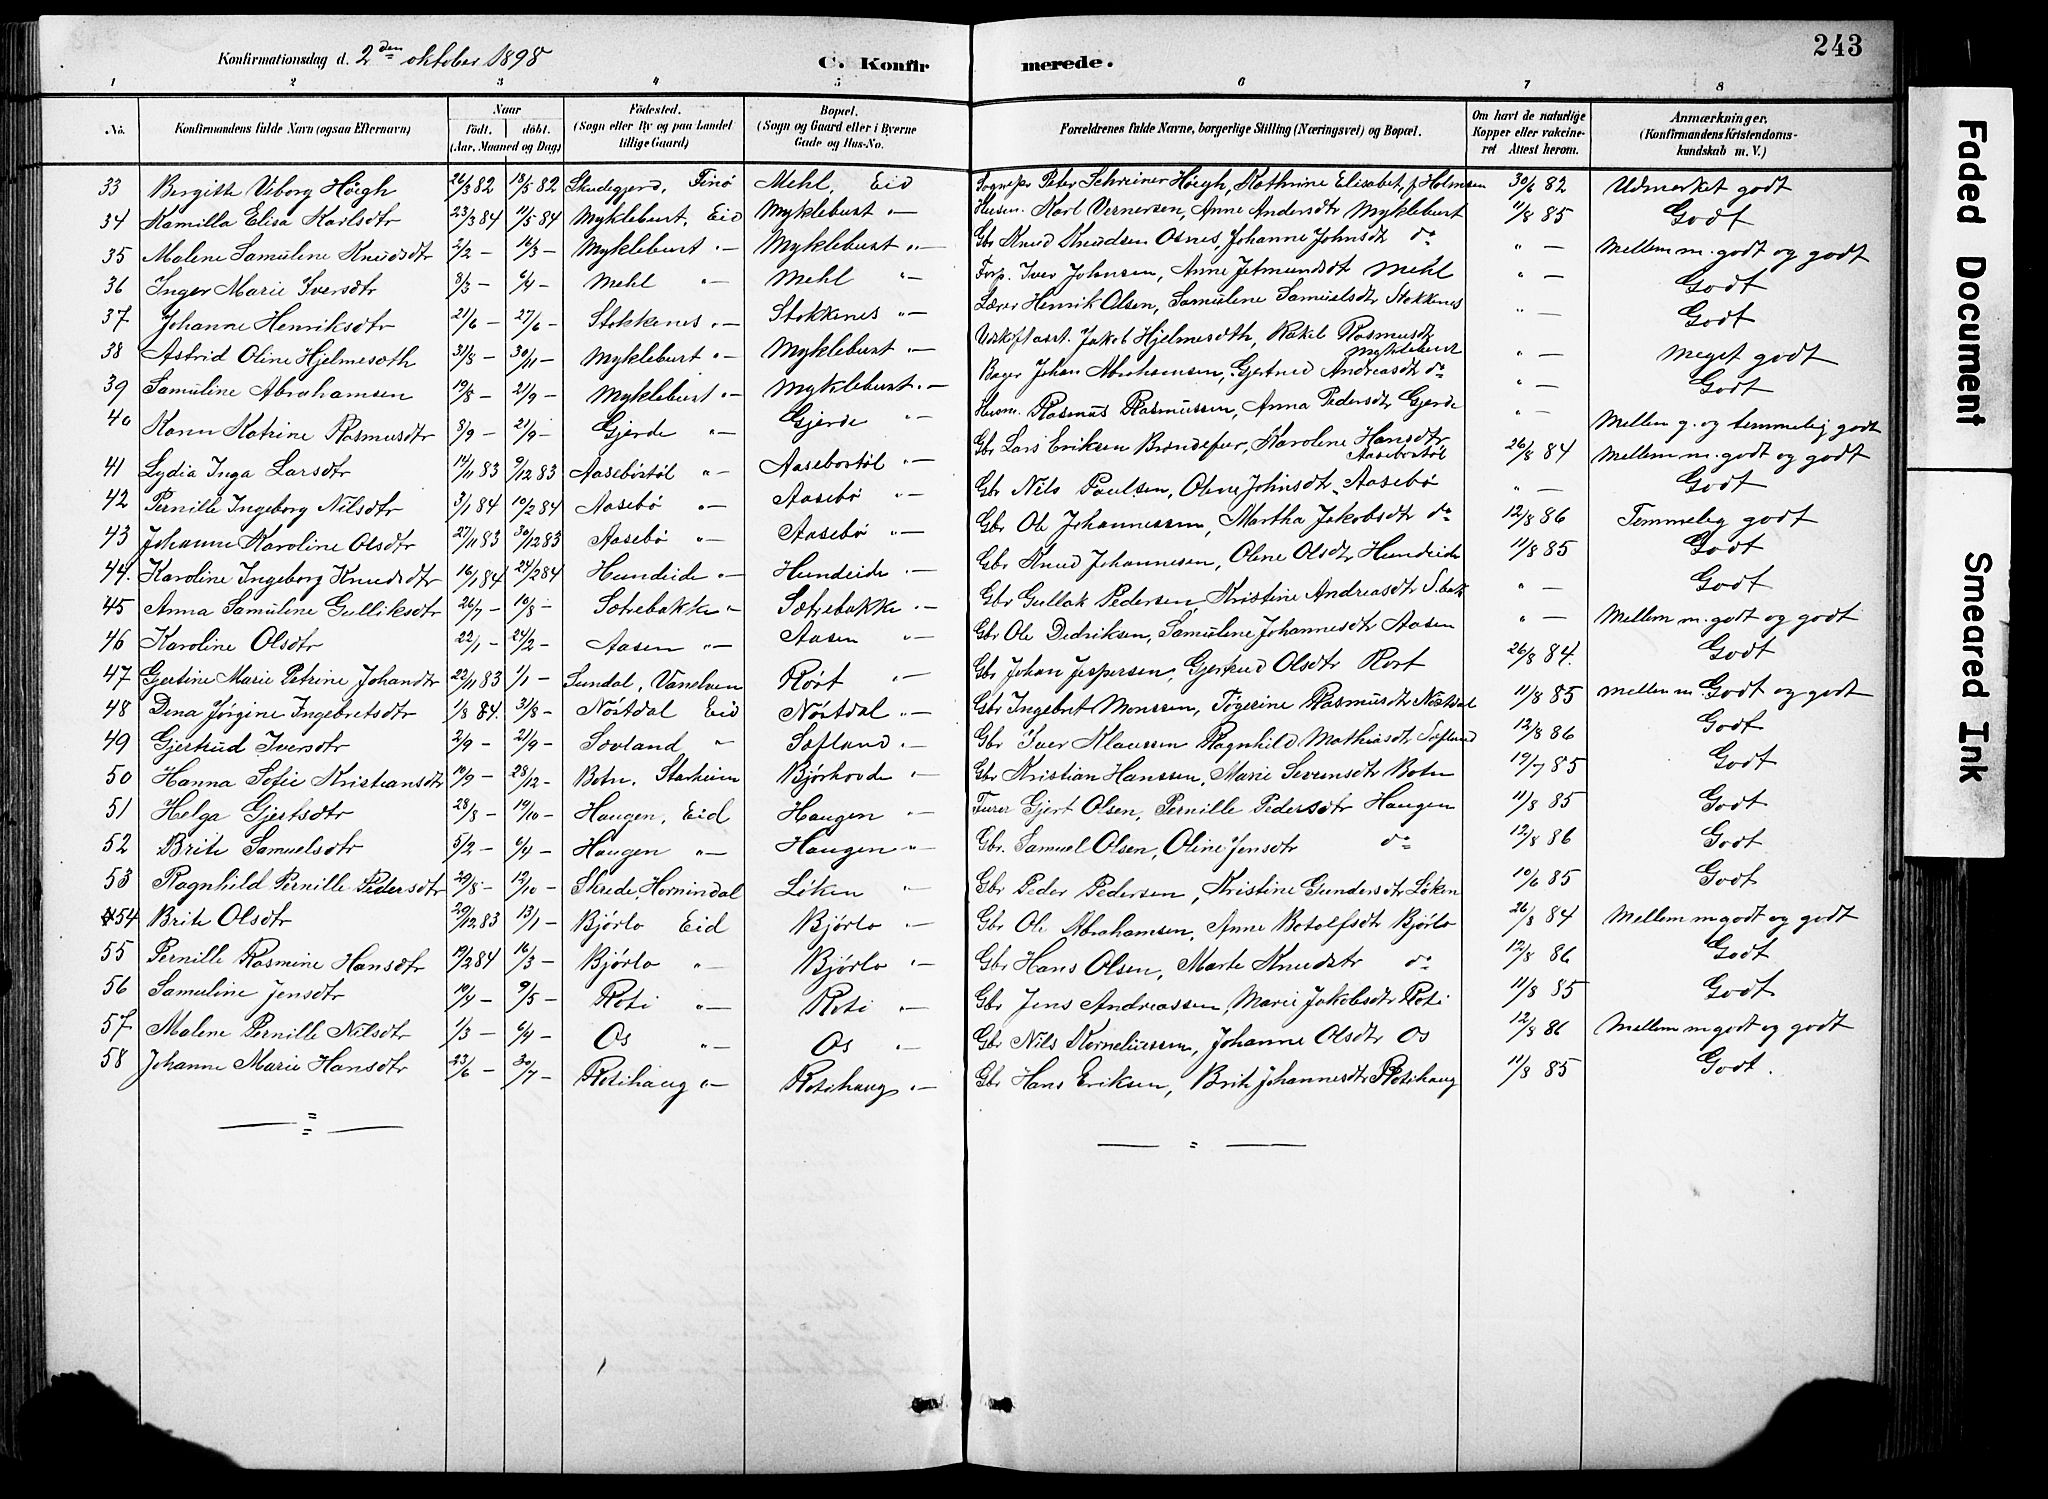 243
Konfirmationsdag d. 2den oktober 1898
C. Konfirmerede.
1 2 3 4 5 6 7 8
No.
Konfirmandens fulde Navn (ogsaa Efternavn)
Naar
født. døbt.
(Aar, Maaned og Dag)
Fødested.
(Sogn eller By og paa Landet
tillige Gaard)
Bopæl.
(Sogn og Gaard eller i Byerne
Gade og Hus-No.
Forældrenes fulde Navne, borgerlige Stilling (Næringsvei) og Bopæl.
Om havt de naturlige
Kopper eller vakcineret
Attest herom.
Anmærkninger.
(Konfirmandens Kristendomskundskab
m. V.)
33 Bergitte Viborg Höegh 26/3 82 18/5 82 Skudegjerd, Finö Mehl, Eid Sognepr Peter Schreiner Höegh, Kathrine Elisabet, f Holmsen 30/6 82 Udmerket godt
34 Kamilla Elisa Karlsdtr 23/3 84 11/5 84 Myklebust, Eid Myklebust "— Husm. Karl Vernersen, Anne Andersdtr Myklebust 11/8 85 Godt
35 Malene Samuline Knudsdtr 2/2 — 16/3 — Myklebust "— Myklebust "— Gbr Knud Knudsen Osnes, Johanne Johnsdt do " — Mellem m. godt og godt
36 Inger Marie Iversdtr 8/3 — 6/4 — Mehl "— Mehl "— Forp. Iver Johnsen, Anne Jetmundsdt Mehl " — Godt
37 Johanne Henriksdtr 21/6 — 27/6 — Stokkenes "— Stokkenes "— Lærer Henrik Olsen, Samuline Samuelsdtr Stokkenes " — Godt
38 Astrid Oline Hjelmesæth 31/8 — 30/11 — Myklebust "— Myklebust "— Jakob Hjelmesæth, Rakel Rasmusdt Myklebust " — Meget godt
39 Samuline Abrahamsen 19/8 — 21/9 — Myklebust "— Myklebust "— Bager Johan Abrahamsen, Gjertrud Andreasdt do " — Godt
40 Karen Katrine Rasmusdtr 8/9 — 21/9 — Gjerde "— Gjerde "— Husm. Rasmus Rasmussen, Anna Pedersdtr Gjerde " — Mellem g. og temmelig godt
41 Lydia Inga Larsdtr 14/11 83 9/12 83 Aasebøstøl "— Aasebøstøl "— Gbr Lars Eriksen Brandefur, Karoline Hansdtr Aasebøstøl 26/8 84 Mellem m. godt og godt
42 Pernille Ingeborg Nilsdtr 3/1 84 10/2 84 Aasebø "— Aasebø "— Gbr Nils Paulsen, Oline Johnsdtr Aasebø " — Godt
43 Johanne Karoline Olsdtr 27/11 83 30/12 83 Aasebø "— Aasebø "— Gbr Ole Johannessen, Martha Jakobsdtr do 12/8 86 Temmelig godt
44. Karoline Ingeborg Knudsdtr 16/1 84 24/2 84 Hundeide "— Hundeide "— Gbr Knud Johannesen, Oline Olsdtr Hundeide 11/8 85 Godt
45 Anna Samuline Gulliksdtr 26/7 — 10/8 — Sætrebakke "— Sætrebakke "— Gbr Gullak Pedersen, Kristine Andreasdtr S.bak " — Godt
46 Karoline Olsdtr 22/1 — 24/2 — Aasen "— Aasen "— Gbr Ole Dedriksen, Samuline Johannesdtr Aasen " — Mellem m. godt og godt
47 Gjertine Marie Petrine Johandtr 22/11 83 1/1 — Sundal, Vanelven Rørt "— Gbr Johan Jespersen, Gjertrud Olsdtr Rørt 26/8 84. Godt
48 Dena Jørgine Ingebretsdtr 1/8 84. 31/8 — Nøstdal Eid Nøstdal "— Gbr Ingebret Monssen, Rasmusdtr Nøstdal 11/8 85 Mellem m Godt og godt
49 Gjertrud Iversdtr 2/9 — 21/9 — Sovland " Sæfland "— Gbr Iver Klaussen Ragnhild Mathiasdtr Sæfland 12/8 86 Godt
50 Hanna Sofie Kristiansdtr 10/9 — 28/12 — Botn, Starheim Bjørhovde "— Gbr Kristian Hanssen, Marie Severinsdtr Botn 19/7 85 Godt
51 Helga Gjertsdtr 28/8 — 19/10 — Haugen, Eid Haugen "— Furer Gjert Olsen, Pernille Pedersdtr Haugen 11/8 85 Godt
52 Brite Samuelsdtr 5/2 — 6/4 — Haugen "— Haugen "— Gbr. Samuel Olsen, Oline Jensdtr do 12/8 86 Godt
53 Ragnhild Pernille Pedersdtr 29/8 — 12/10 — Skrede, Hornindal Løken "— Gbr Peder Pedersen, Kristine Gundersdtr Løken 10/6 85 Godt
54 Brite Olsdtr 29/12 83 13/1 — Bjørlo Eid Bjørlo "— Gbr Ole Abrahamsen, Anne Botolfsdt Bjørlo 26/8 84 Mellem m godt og godt
55 Pernille Rasmine Hansdtr 19/2 84 16/3 — Bjørlo "— Bjørlo "— Gbr Hans Olsen, Marte Knudsdtr do 12/8 86 Godt
56 Samuline Jensdtr 10/4 — 9/5 — Roti "— Roti "— Gbr Jens Andreassen, Marie Jakobsdtr Roti 11/8 85 Godt
57 Malene Pernille Nilsdtr 1/3 — 6/4 — Os "— Os "— Gbr Nils Korneliussen, Johanne Olsdtr Os 12/8 86 Mellem m godt og godt
58 Johanne Marie Hansdtr 23/6 — 30/7 — Rotihaug "— Rotihaug "— Gbr Hans Eriksen, Brite Johannesdtr Rotihaug 11/8 85 Godt.
Faded Document
Smeared Ink